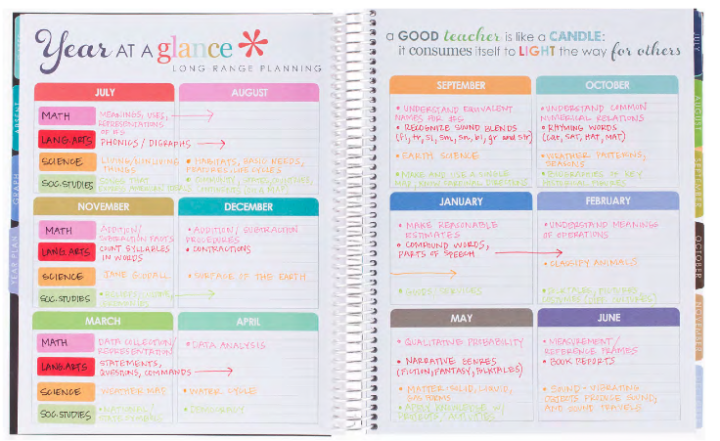 Year AT A glance
LONG-RANGE PLANNING
JULY
AUGUST
MATH
MEANINGS, USES,
REPRESENTATIONS
OF #S
LANG.ARTS
PHONICS / DIGRAPHS
SCIENCE
LIVING/NONLIVING
THINGS
• HABITATS, BASIC NEEDS,
FEATURES, LIFE CYCLES
SOC.STUDIES
NOVEMBER
DECEMBER
MATH
ADDITION/
SUBTRACTION FACTS
• ADDITION/ SUBTRACTION
PROCEDURES
LANG.ARTS
COUNT SYLLABLES
IN WORDS
• CONTRACTIONS
SCIENCE
JANE GOODALL
• SURFACE OF THE EARTH
SOC.STUDIES
MARCH
APRIL
MATH
DATA COLLECTION/
REPRESENTATION
• DATA ANALYSIS
LANG.ARTS
STATEMENTS,
QUESTIONS, COMMANDS
SCIENCE
WEATHER MAP
• WATER CYCLE
SOC.STUDIES
• DEMOCRACY
a GOOD teacher is like a CANDLE:
it consumes itself to LIGHT the way for others
SEPTEMBER
OCTOBER
• UNDERSTAND EQUIVALENT
NAMES FOR #S
• RECOGNIZE SOUND BLENDS
(fl, tr, sl, sm, sn, bl, gr and str)
• EARTH SCIENCE
• MAKE AND USE A SIMPLE
• UNDERSTAND COMMON
NUMERICAL RELATIONS
• RHYMING WORDS
(Cat, SAT, HAT, MAT)
• WEATHER PATTERNS,
SEASONS
• BIOGRAPHIES OF KEY
HISTORICAL FIGURES
JANUARY
FEBRUARY
• MAKE REASONABLE
ESTIMATES
• COMPOUND WORDS,
PARTS OF SPEECH
• UNDERSTAND MEANINGS
OF OPERATIONS
• CLASSIFY ANIMALS
MAY
JUNE
• QUALITATIVE PROBABILITY
• NARRATIVE GENRES
(FICTION, FANTASY, BIL/TALES)
• MATTER: SOLID, LIQUID,
• MEASUREMENT/
REFERENCE FRAMES
• BOOK REPORTS
• SOUND - VIBRATING
OBJECTS PRODUCE SOUND,
AND SOUND TRAVELS
YEAR PLAN
GRAPH
JULY
AUGUST
OCTOBER